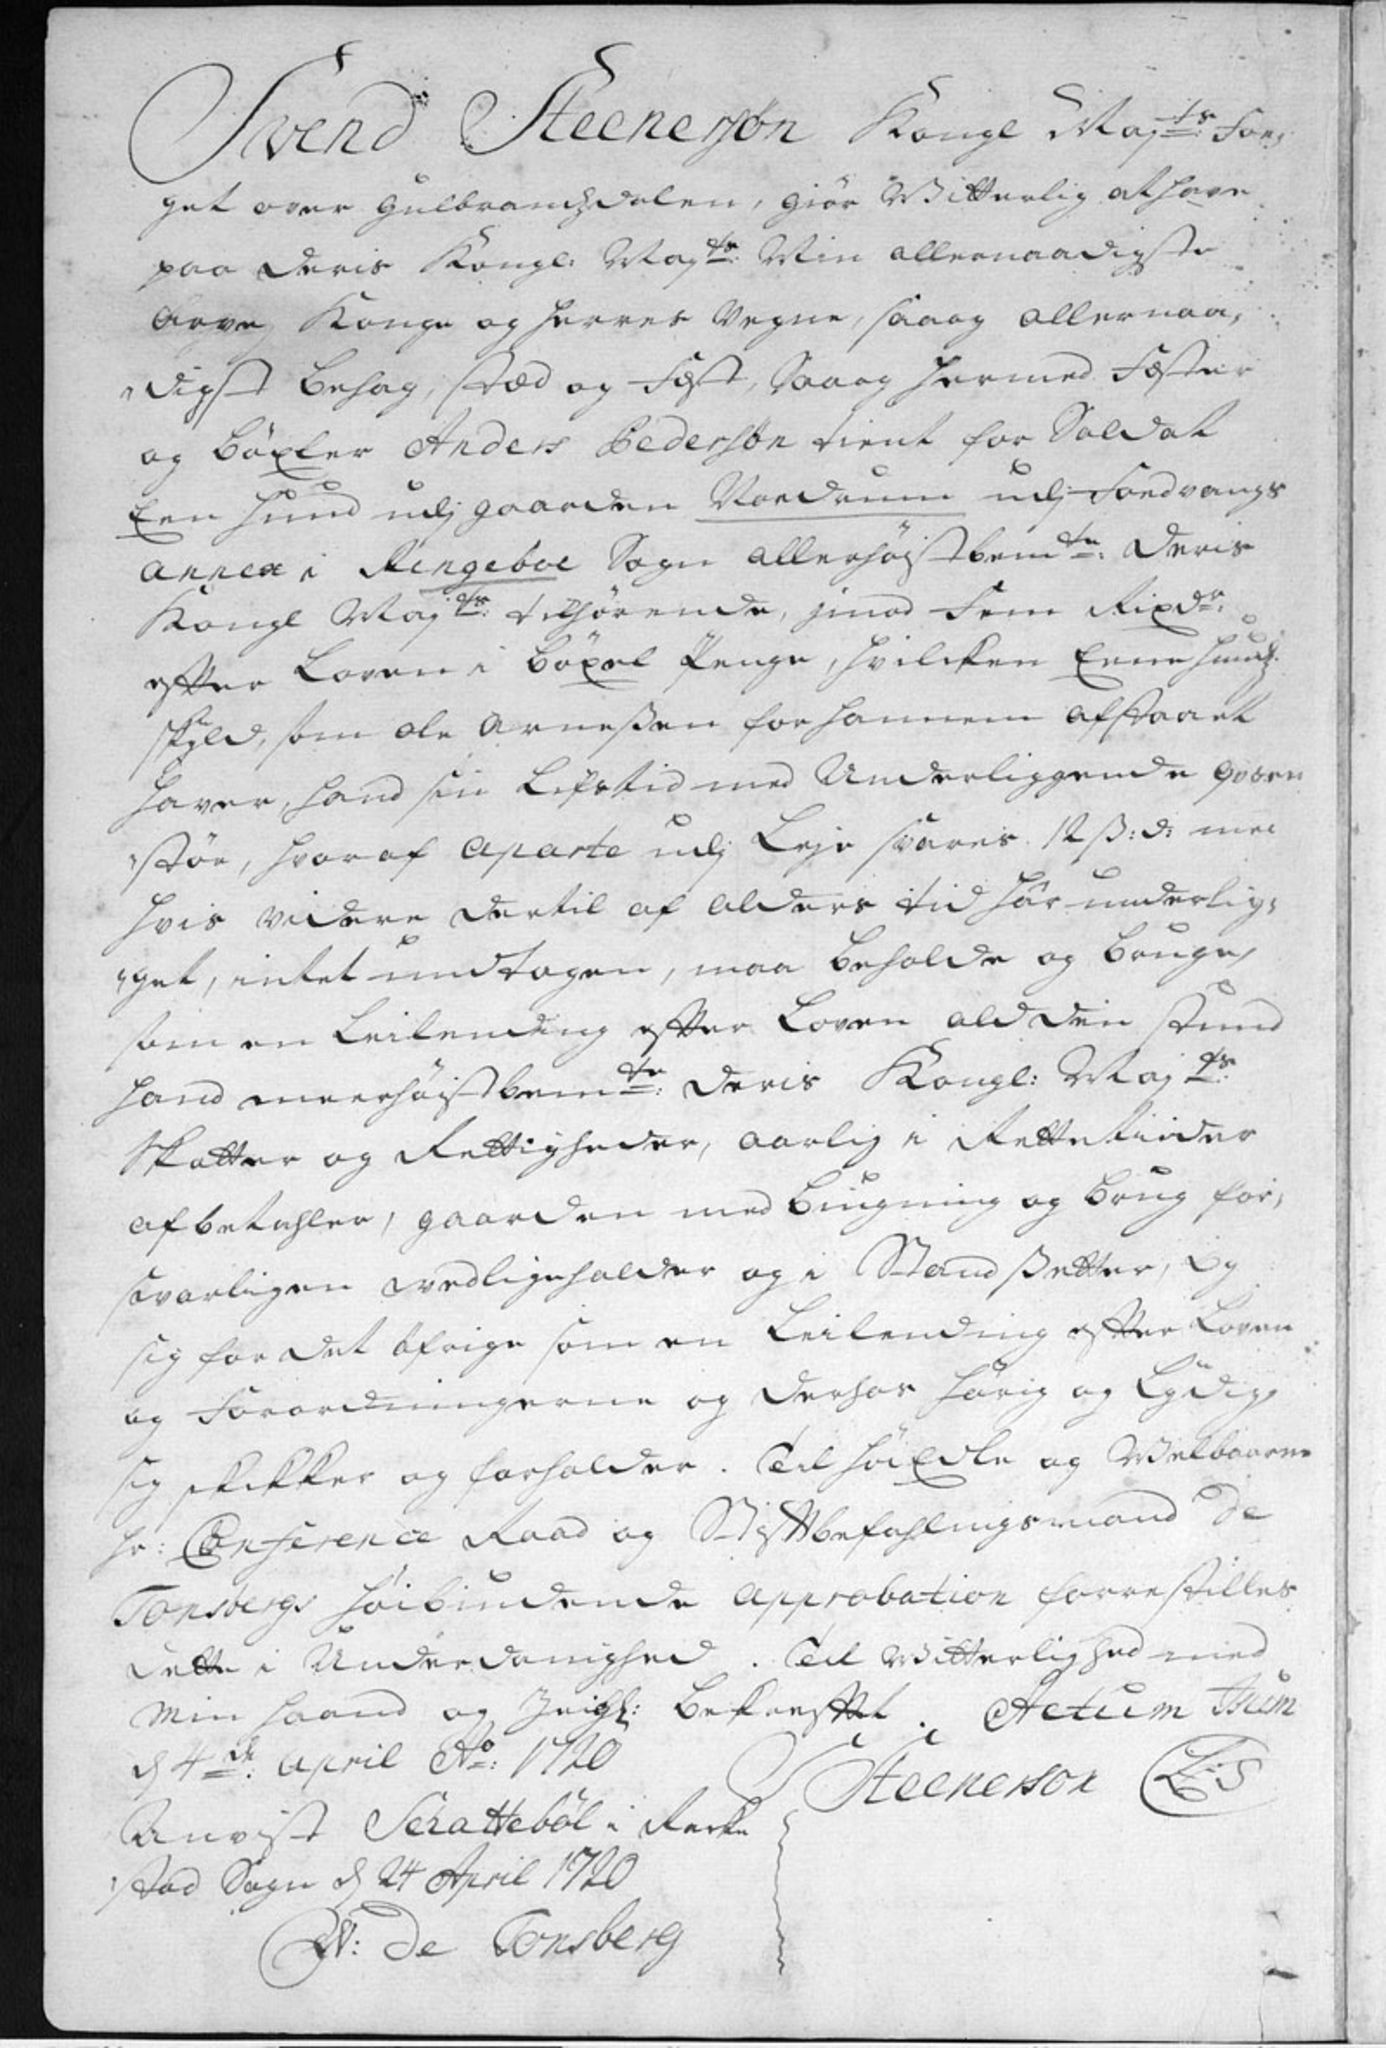 Svend Steenersøn Kongl Maj:ts Fou,
get over Gulbrandsdalen, Giør Witterlig at have
paa Deris Kongl: Maj:ts Min allernaadigste
Arve Konge og Herres Vegne, saa og allernaa,
"digst behag, sted og fest, Saa og hermed Fæster
og böxler Anders Pedersøn tient for Soldat
Een Hund udj gaarden Wordrum udj Fordvangs
Annex i Ringeboe Sogn allerhöistbem:te Deris
Kongl Maj:ts tilhörende, jmod Fem Rixd:r
efter Loven i böxel Penge, hvilcken Eene Hunds
skyld, som Ole Arneßen for hannem afstaaet
haver, hand sin Lifstid med Underliggende
"stör, hvoraf aparte udj Leje svares 12 ß: d: med
hvis videre dertil af Alders tid har underlig,
"get, intet undtagen, maa beholde og bruge,
som en Leilending efter Loven ald den stund
hand meerhöistbem:te Deris Kongl: Maj:ts
Skatter og Rettigheder, aarlig i Rette tiider
afbetahler, gaarden med bugning og brug for,
svarligen vedligeholder og i Stand ßetter, og
sig for det öfrige som en Leilending efter Loven
og Forordningerne og derhos hörig og Lydig,
sig skikker og forholder. Til HöiEdle og Welbaarne
Hr: Conference Raad og Stiftbefahlingsmand De
Tonsbergs höibiudende approbation forrestilles
dette i Underdanighed. Til Witterlighed med
Min haand og Zeigl: bekreftet. Actum Isum
d 4de: April Ao: 1720
Steenersøn L:S
Anvist Scrattebøl i Rack
"stad Sogn d 24 April 1720
W: De Tonsberg